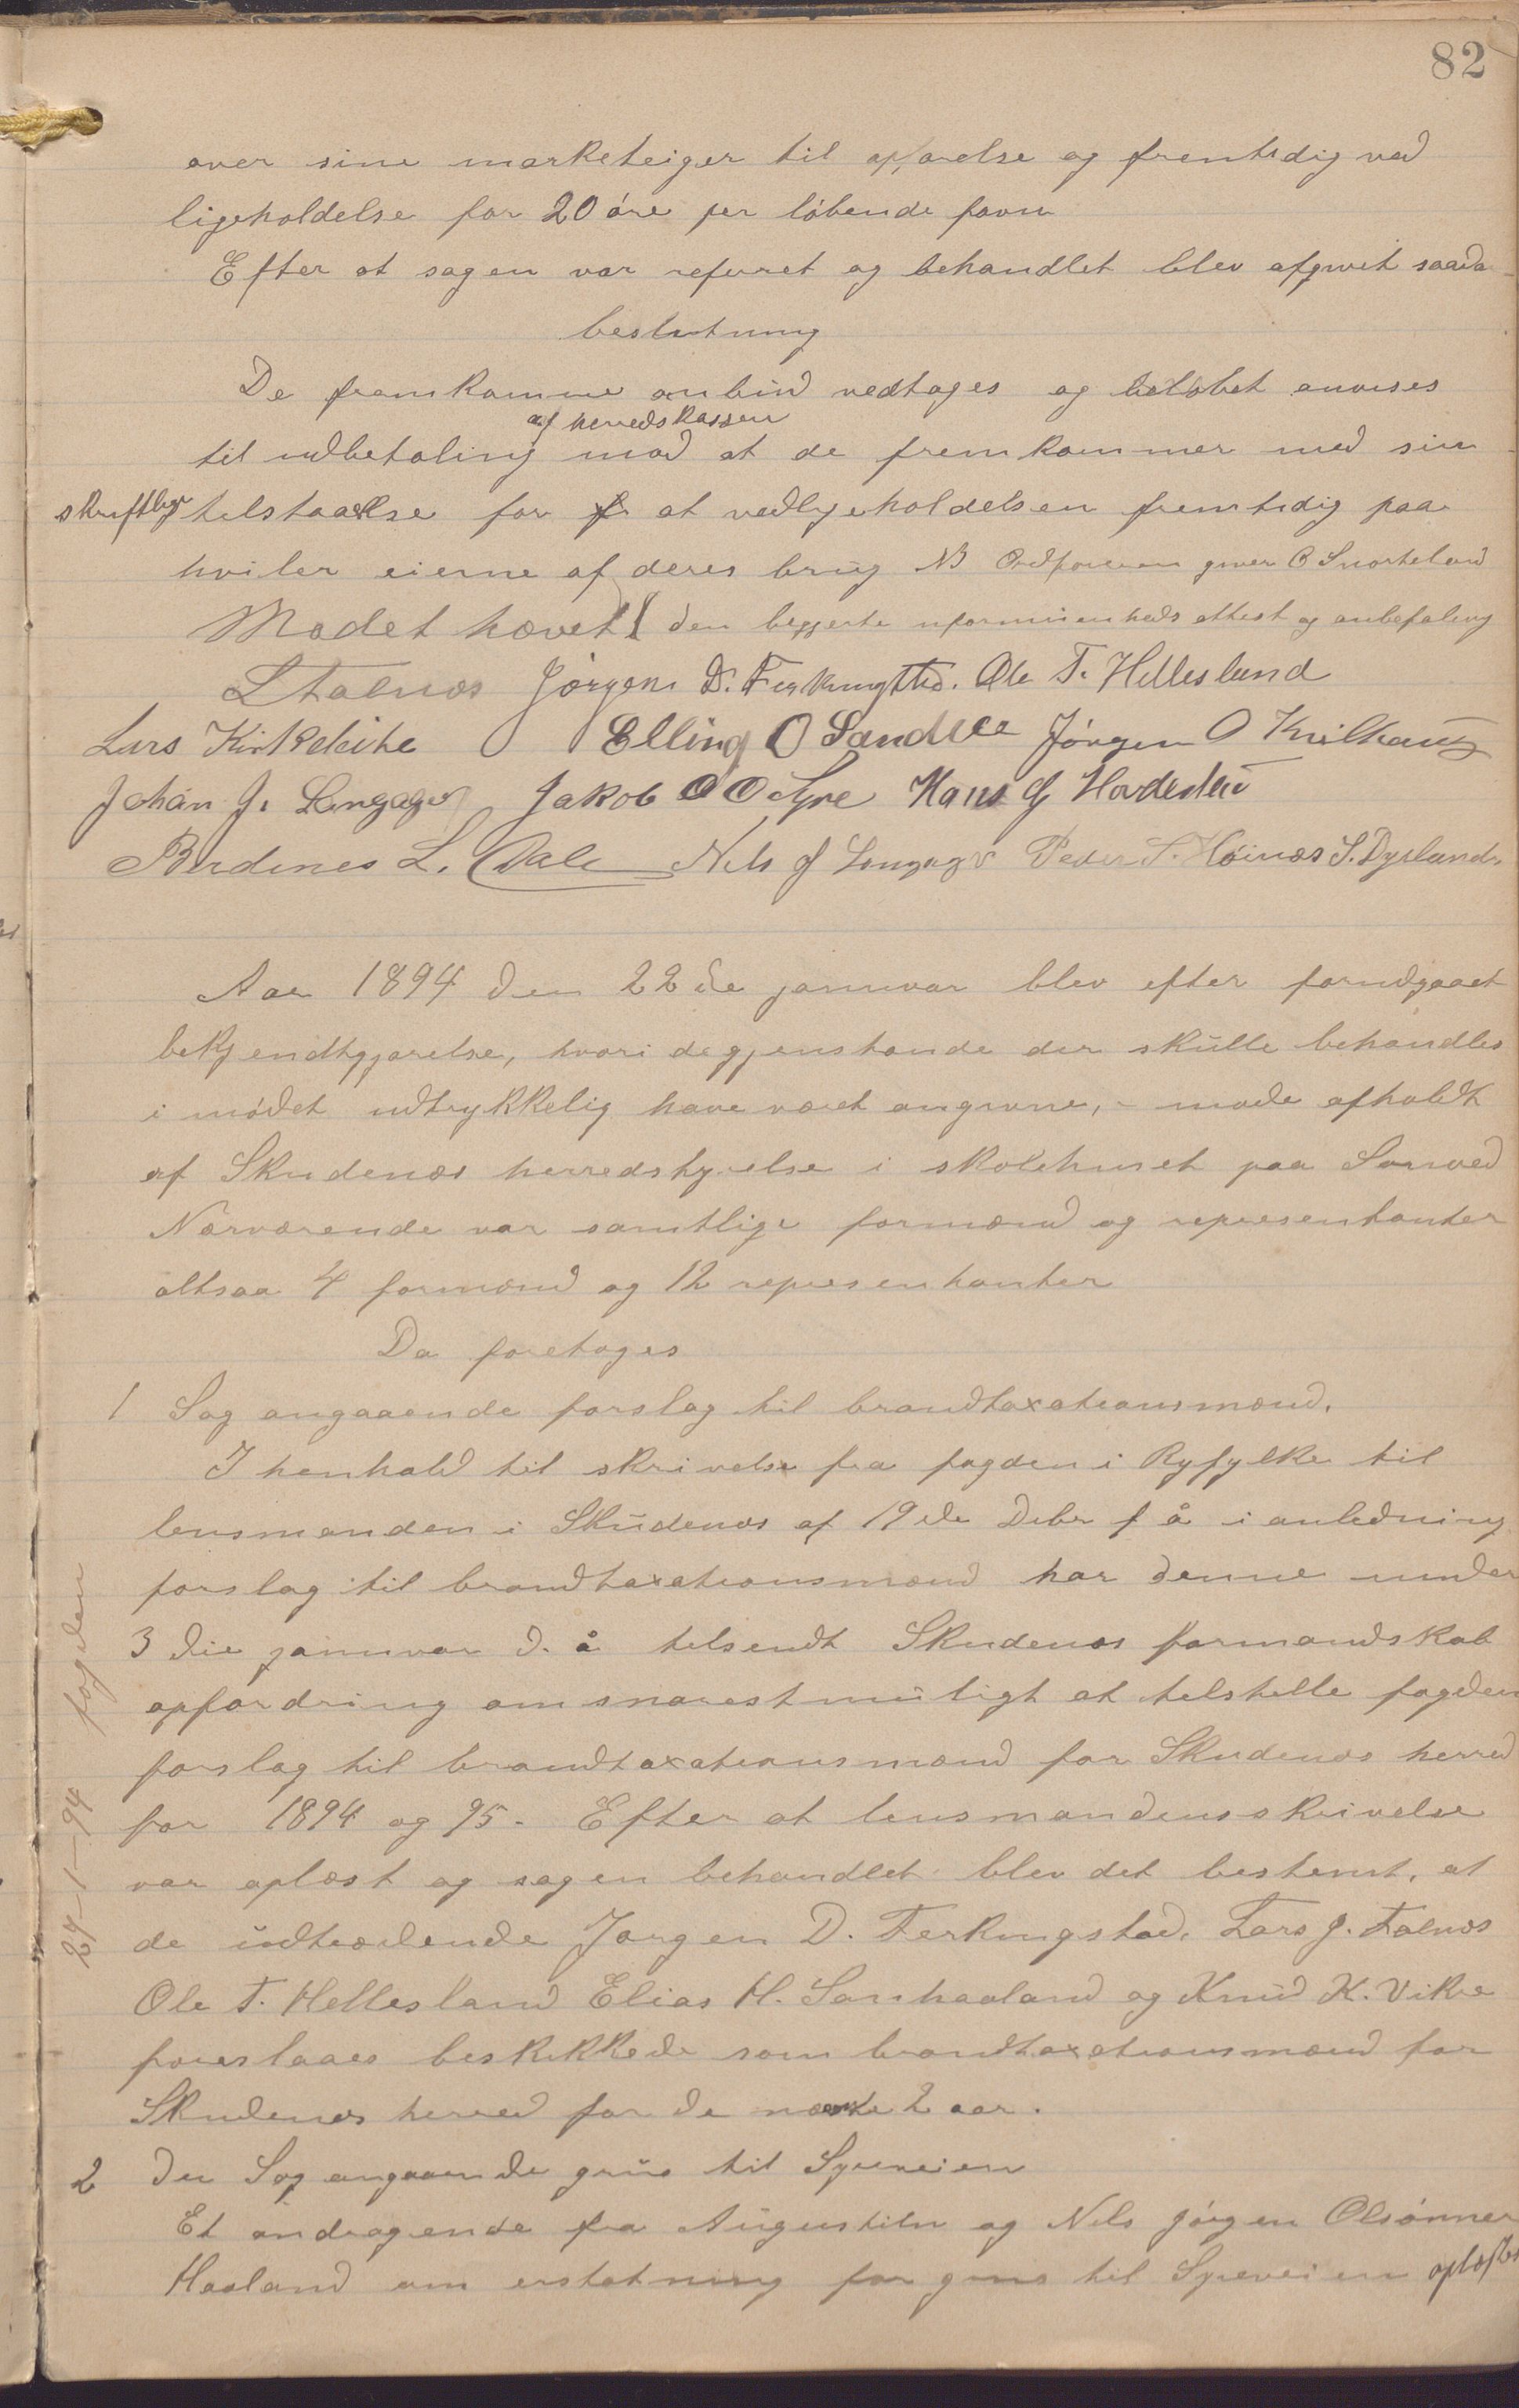 82
over sine marketeiger til opførelse og fremtidig ved
ligeholdelse for 20 øre per løbende favn
Efter at sagen var referet og behandlet blev afgivet saada
beslutning
De fremkomne anbud vedtages og beløbet anvises
af herredskassen
til udbetaling mod at de fremkommer med sin
skriftlige tilstaaelse for at vedligeholdelsen fremtidig paa
hviler eierne af deres brug NB Ordføreren giver O Snorteland
Mødet hævet den begjerte uformuenheds attest og anbefaling
L Falnæs Jørgen D. Ferkingstad. Ole T. Hellesland
Lars Kirkeleite Elling O Sandvee Jørgen O Kvilhaug
Johan J. Langager Jakob O O Syre Hans J Hovdesteu
Berdines L. Dale Nils J Langager Peder S. Høinæs S. Dysland
Aar 1894 den 22de januar blev efter forudgaaet
bekjendtgjørelse, hvori de gjenstande der skulle behandles
i mødet udtrykkelig have været angivne, - møde afholdt
af Skudenæs herredstyrelse i skolehuset paa Sørved
Nærværende var samtlige formænd og representanter
altsaa 4 formænd og 12 representanter
Da foretoges
1 Sag angaaende forslag til brandtaxationsmænd.
I henhold til skrivelse fra fogden i Ryfylke til
lensmanden i Skudenæs af 19de Dcbr f å i anledning
forslag til brandtaxationsmænd har denne under
3die januar d. å tilsendt Skudenæs formandskab
opfordring om snarest muligt at tilstille fogden
forslag til brandtaxationsmænd for Skudenæs herred
for 1894 og 95. Efter at lensmandens skrivelse
var oplæst og sagen behandlet blev det bestemt, at
de udtrædende Jørgen D. Ferkingstad, Lars J. Falnæs
Ole T. Hellesland Elias H. Sørhaaland og Knud K. Vikre
foreslaaes beskikkede som brandtaxationsmænd for
Skudenæs herred for de næste 2 aar.
27-1-94 fogden
2 den Sag angaaende grus til Syreveien
Et andragende fra Augustiln og Nils Jørgen Olsønner
Haaland om erstatning for grus til Syreveien oplæstes